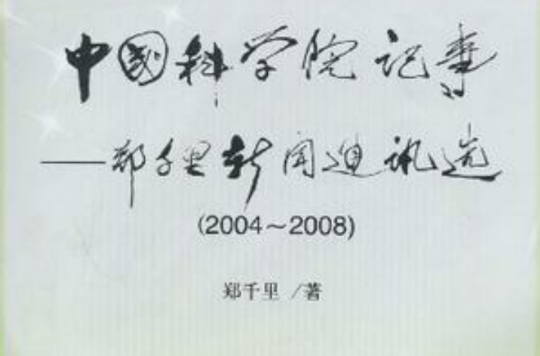 中国科学院记事
——郑千里新闻通讯选
(2004～2008)
郑千里 /著